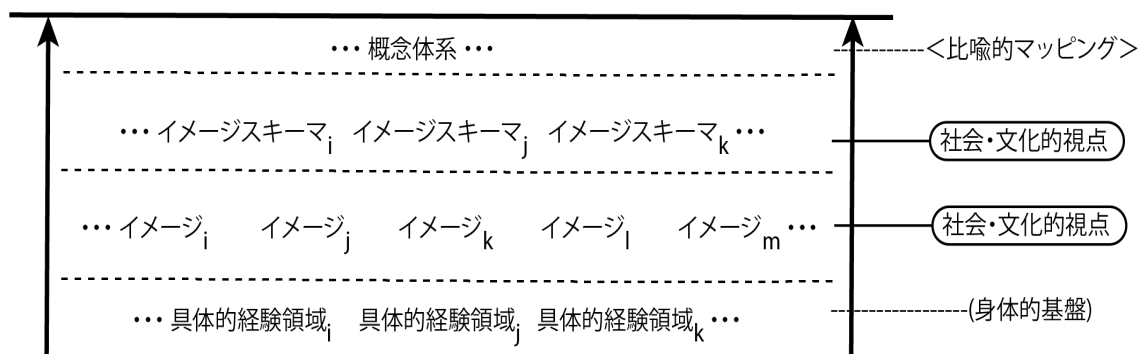 … 概念体系 … <比喩的マッピング>
… イメージスキーマi イメージスキーマj イメージスキーマk … 社会・文化的視点
… イメージi イメージj イメージk イメージl イメージm … 社会・文化的視点
… 具体的経験領域i 具体的経験領域j 具体的経験領域k … (身体的基盤)